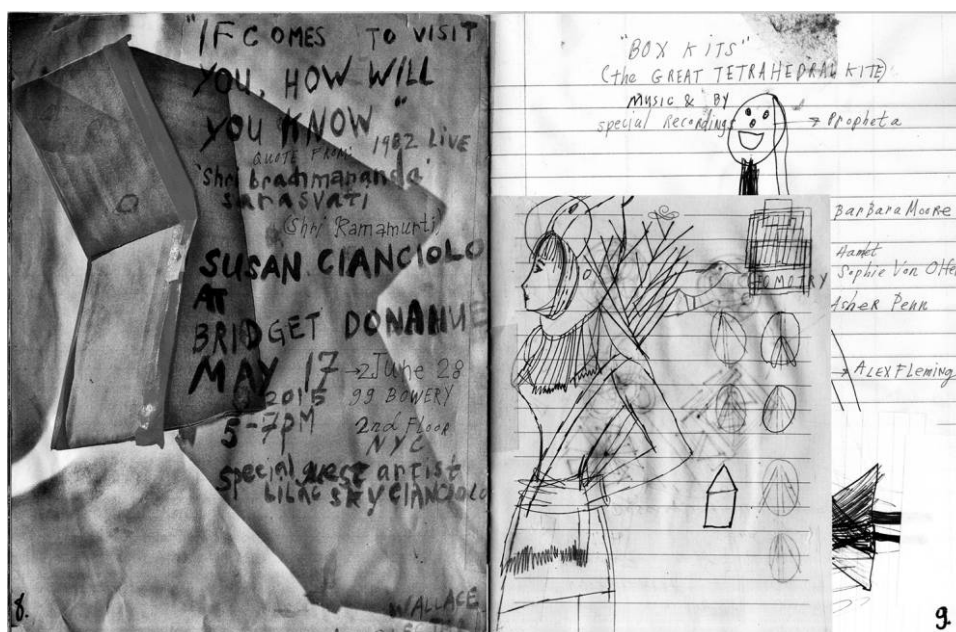 "IF COMES TO VISIT
YOU, HOW WILL
YOU KNOW"
QUOTE FROM 1982 LIVE
'Shri brahmananda'
sarasvati
(Shri Ramamurti)
SUSAN CIANCIOLO
AT
BRIDGET DONAHUE
MAY 17 → June 28
2015 99 BOWERY
5-7pm 2nd FLOOR
NYC
special guest artist
LILAC SKY CIANCIOLO
WALLACE
8.
"BOX KITS"
(the GREAT TETRAHEDRAL KITE)
MUSIC & BY
special Recordings → Propheta
Barbara Moore
Sophie Von Olfe
Asher Penn
→ ALEX Fleming
9.